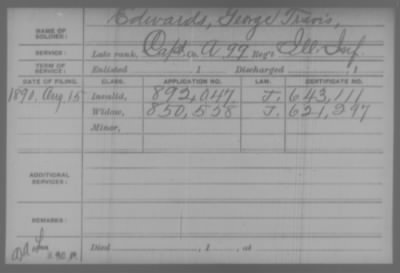 NAME OF SOLDIER: Edwards, George Travis,
SERVICE: Late rank, Capt. Co. A 77 Reg't Ill. Inf.
TERM OF SERVICE: Enlisted , 1 Discharged , 1
DATE OF FILING. CLASS. APPLICATION NO. LAW. CERTIFICATE NO.
1890, Aug. 15 Invalid, 892,047 J. 643,111
Widow, 850,558 J. 621,297
Minor,
ADDITIONAL SERVICES:
REMARKS:
Died , 1 , at